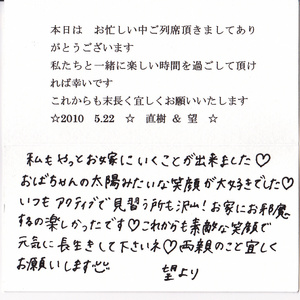 本日は お忙しい中ご列席頂きましてあり
がとうございます
私たちと一緒に楽しい時間を過ごして頂け
れば幸いです
これからも末長く宜しくお願いいたします
☆2010 5.22 ☆ 直樹 & 望 ☆
私もやっとお嫁にいくことが出来ました♡
おばちゃんの太陽みたいな笑顔が大好きでした♡
いつもアクティブで見習う所も沢山!お家にお邪魔
するの楽しかったです♡これからも素敵な笑顔で
元気に長生きして下さいネ♡両親のこと宜しく
お願いします
望より